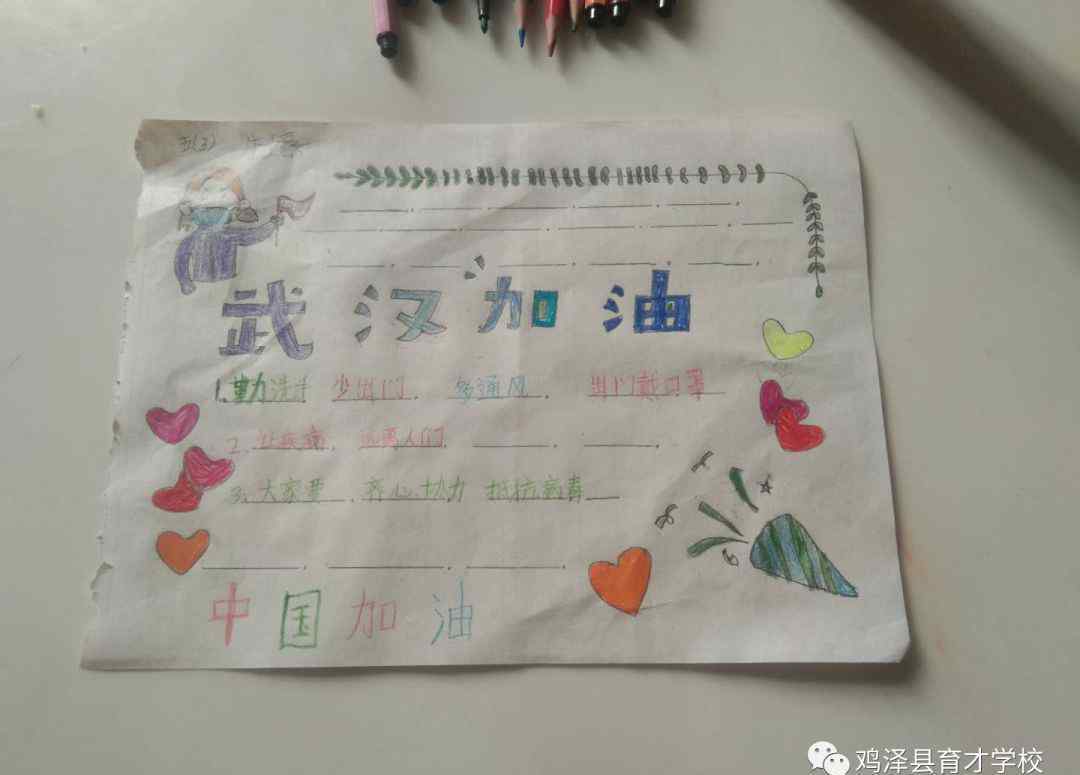 五(3)
武汉加油
1.勤洗手 少出门. 多通风. 出门戴口罩
2. 让疾病. 远离人们.
3、大家要 齐心协力 抵抗病青
中国加油
鸡泽县育才学校